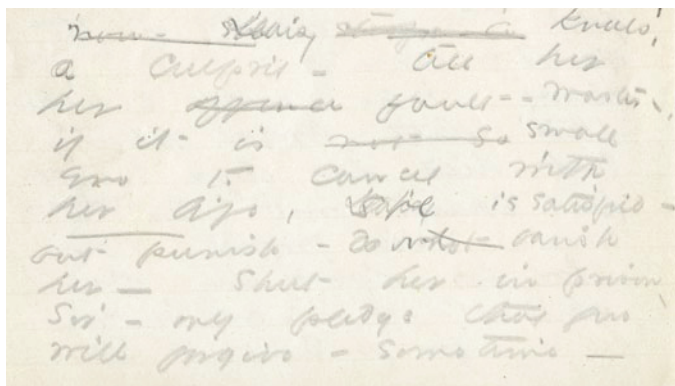 now- Daisy stoops a kneels,
a culprit - tell her
her offence fault - Master -
if it is not so small
eno' to cancel with
her life, she is satisfied -
but punish - do not banish
her - Shut her in prison
Sir - only pledge that you
will forgive - sometime -